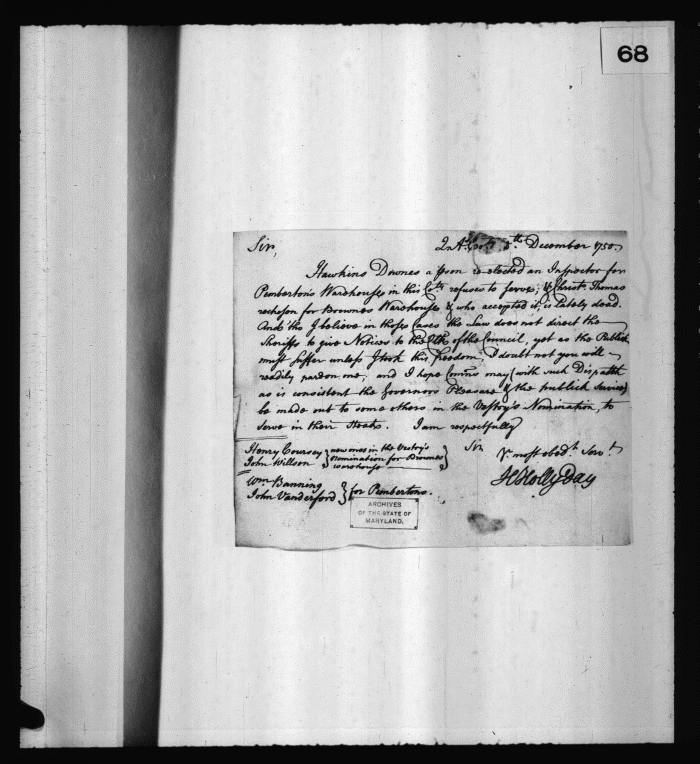 68
Sir, 5th December 1750.
Hawkins Downes a pson re-elected an Inspector for
Pemberton's Warehouse in this Coty refuses to serve; & Christr Thomas
rechosen for Brownes Warehouse & who accepted it, is lately dead.
And tho I believe in those Cases the Law does not direct the
Sheriffs to give Notices to the Clk of the Council, yet as the Publick
must suffer unless I took this freedom; I doubt not you will
readily pardon me; and I hope Comns may (with such Dispatch
as is consistent the Governors Pleasure & the publick Service)
be made out to some others in the Vestry's Nomination, to
serve in their Steads. I am respectfully
Sir Yr most obedt Servt
JC Hollyday
Henry Coursey } new ones in the Vestry's
John Willson } Nomination for Brownes
warehouse
Wm Banning
John Vanderford } for Pembertons.
ARCHIVES
OF THE STATE OF
MARYLAND.